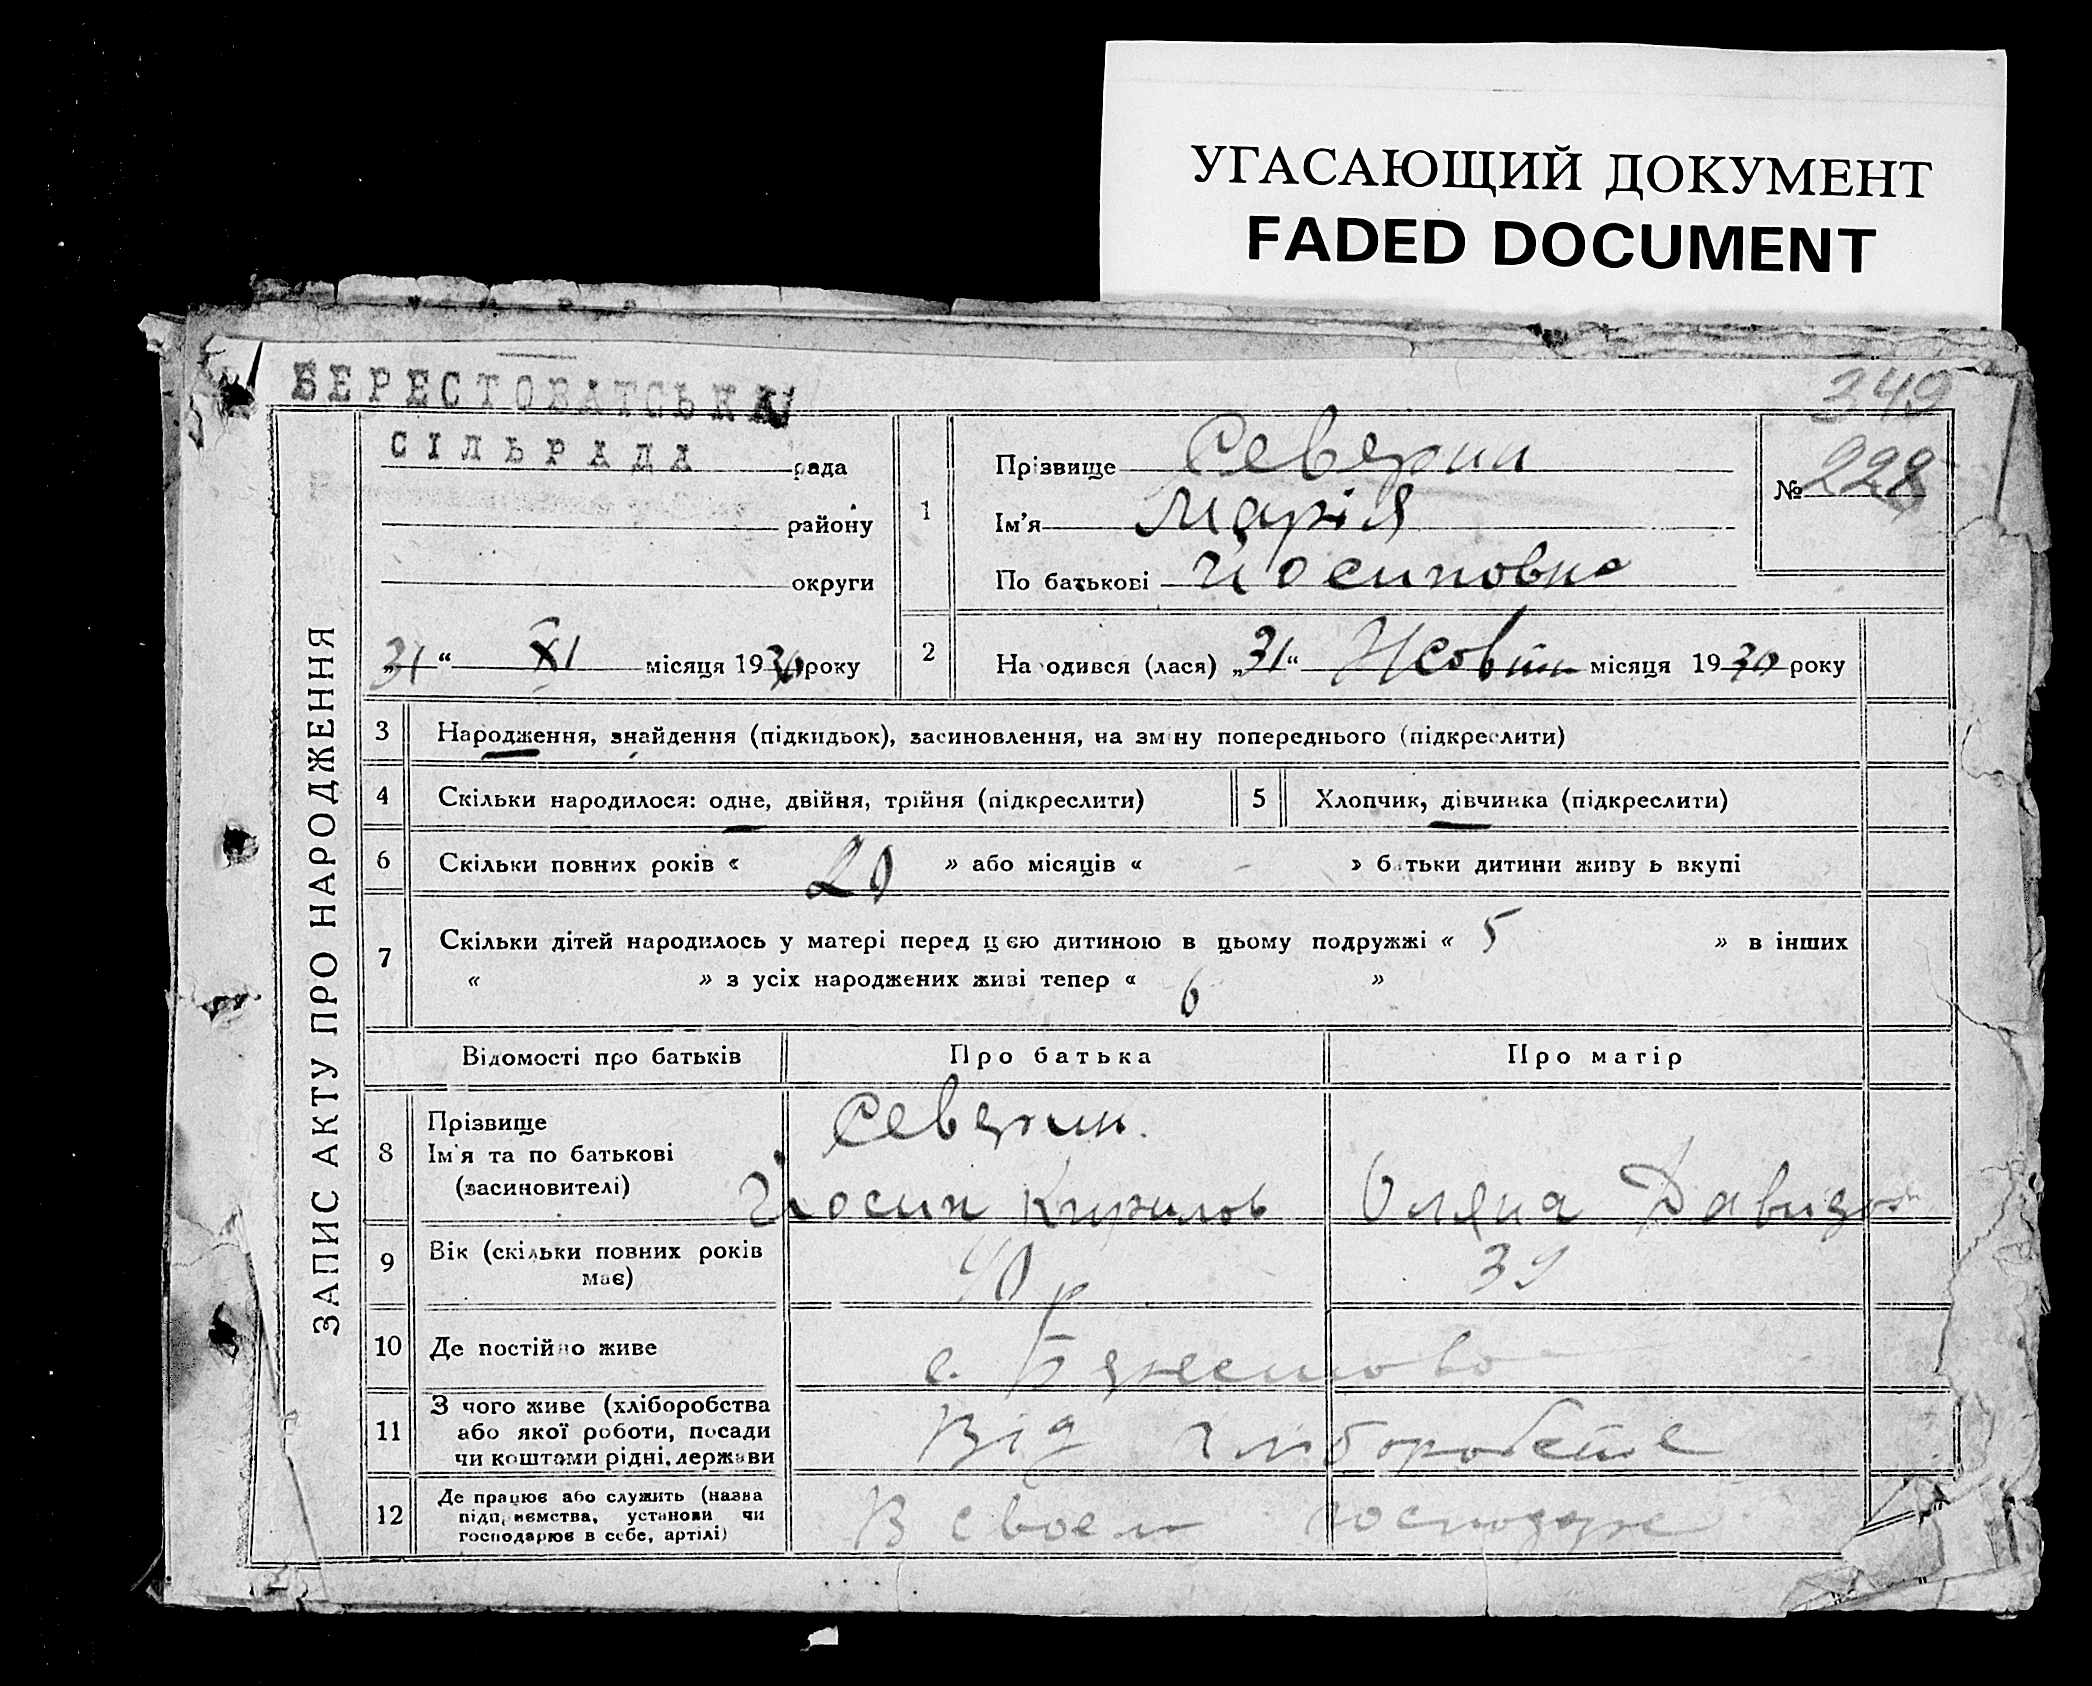 УГАСАЮЩИЙ ДОКУМЕНТ
FADED DOCUMENT
349
БЕРЕСТОВАТСЬКА
СІЛЬРАДА рада
району
округи
„31“ XI місяця 1930 року
ЗАПИС АКТУ ПРО НАРОДЖЕННЯ
1
Прізвище Северин
Ім'я Марія
По батькові Йосиповна
№ 228
2 Народився (лася) „31“ Жовтн місяця 1930 року
3 Народження, знайдення (підкидьок), засиновлення, на зміну попереднього (підкреслити)
4 Скільки народилося: одне, двійня, трійня (підкреслити)
5 Хлопчик, дівчинка (підкреслити)
6 Скільки повних років « 20 » або місяців « - » батьки дитини живуть вкупі
7 Скільки дітей народилось у матері перед цією дитиною в цьому подружжі « 5 » в інших
« » з усіх народжених живі тепер « 6 »
Відомості про батьків Про батька Про матір
8 Прізвище
Ім'я та по батькові
(засиновителі)
Северин.
Йосип Кирилов Оляна Давидов
9 Вік (скільки повних років
має)
40 р 39
10 Де постійно живе с. Берестово
11 З чого живе (хліборобства
або якої роботи, посади
чи коштами рідні, держави
Від хліборобств
12 Де працює або служить (назва
підприємства, установи чи
господарює в себе, артілі)
В своем господар